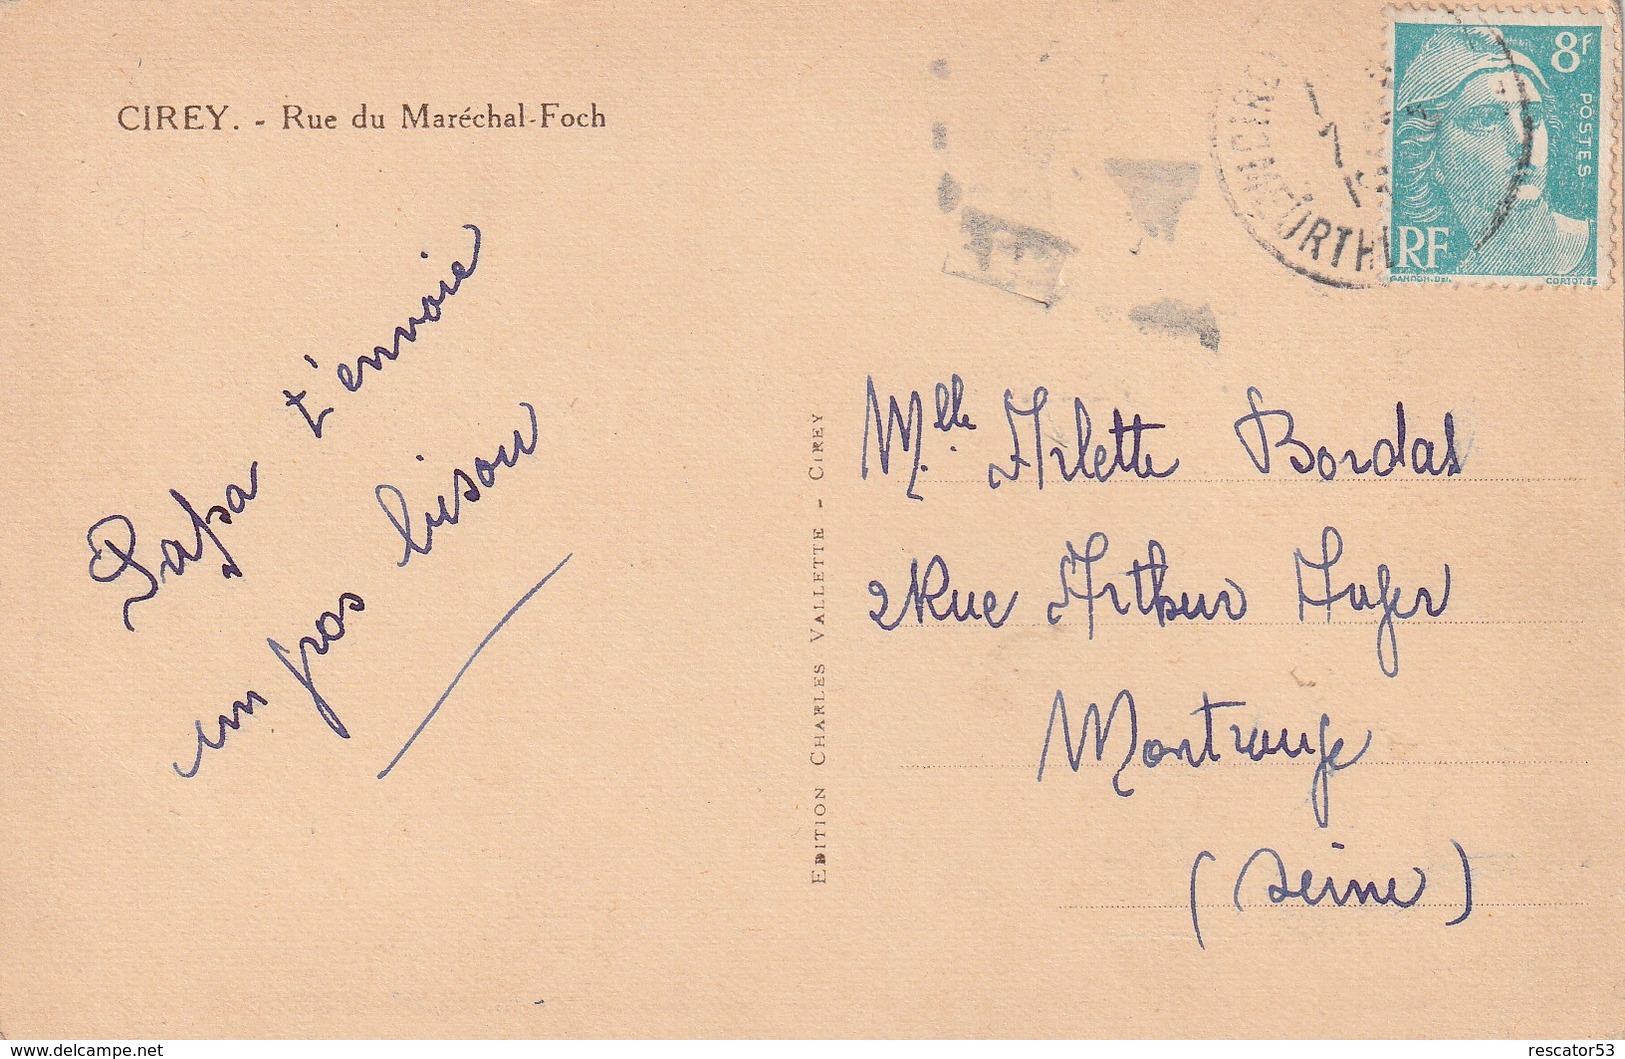 CIREY. - Rue du Maréchal-Foch
Papa t'envoie
un gros bisou
EDITION CHARLES VALLETTE - CIREY
8F
POSTES
RF
GANDON.DEL.
CORTOT.SC
Mlle. Arlette Bordas
2 Rue Arthur Auger
Montrouge
(Seine)
rescator53